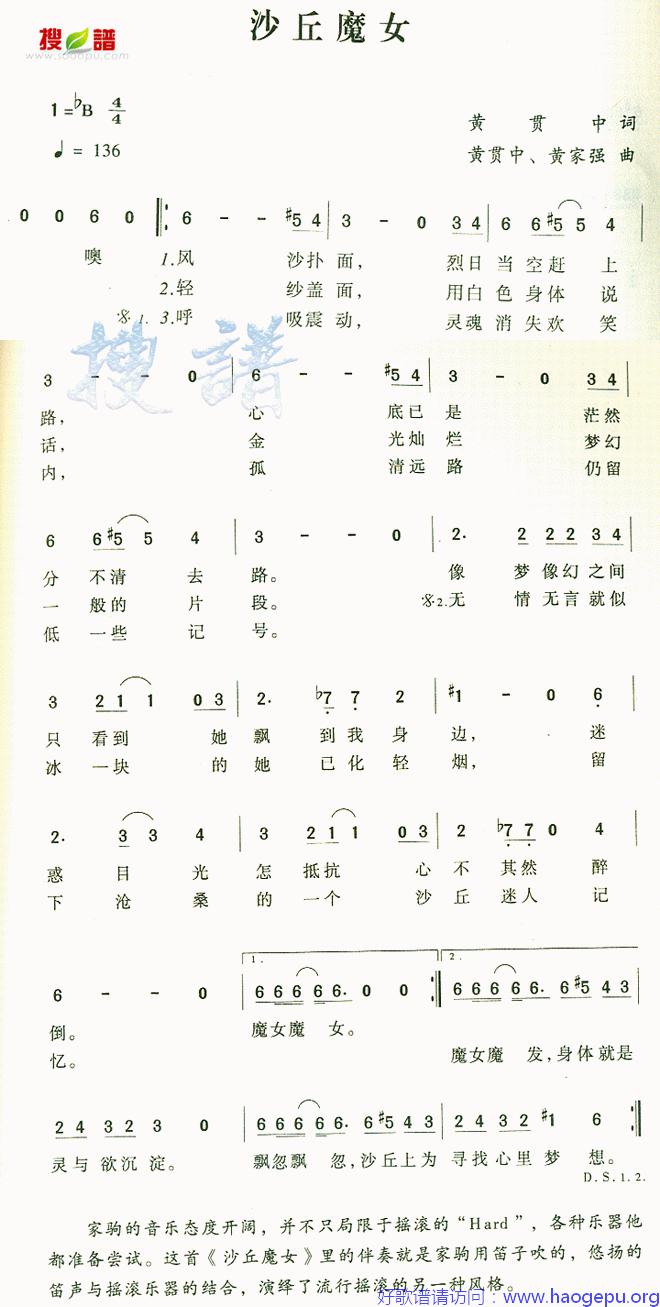 沙丘魔女
搜譜
www.sooopu.com
1=♭B 4/4
♩= 136
黄贯中 词
黄贯中、黄家强 曲
0 0 6 0 ‖: 6 - - #5 4 | 3 - 0 3 4 | 6 6 #5 5 4 |
噢 1.风 沙扑面， 烈日当空赶上
2.轻 纱盖面， 用白色身体说
𝄋1. 3.呼 吸震动， 灵魂消失欢笑
搜譜
3 - - 0 | 6 - - #5 4 | 3 - 0 3 4 |
路， 心 底已是 茫然
话， 金 光灿烂 梦幻
内， 孤 清远路 仍留
6 6 #5 5 4 | 3 - - 0 | 2. 2 2 2 3 4 |
分不清去路。 像梦像幻之间
一般的片段。 𝄋2.无情无言就似
低一些记号。
3 2 1 1 0 3 | 2. ♭7 7 2 | #1 - 0 6 |
只看到 她飘到我身边， 迷
冰一块 的她已化轻烟， 留
2. 3 3 4 | 3 2 1 1 0 3 | 2 ♭7 7 0 4 |
惑目光怎抵抗 心不其然醉
下沧桑的一个 沙丘迷人记
1. 2.
6 - - 0 | 6 6 6 6 6. 0 0 :‖ 6 6 6 6 6. 6 #5 4 3 |
倒。 魔女魔 女。
忆。 魔女魔 发，身体就是
2 4 3 2 3 0 | 6 6 6 6 6. 6 #5 4 3 | 2 4 3 2 #1 6 :‖
灵与欲沉淀。 飘忽飘 忽，沙丘上为 寻找心里梦 想。
D.S.1.2.
家驹的音乐态度开阔，并不只局限于摇滚的“Hard”，各种乐器他
都准备尝试。这首《沙丘魔女》里的伴奏就是家驹用笛子吹的，悠扬的
笛声与摇滚乐器的结合，演绎了流行摇滚的另一种风格。
好歌谱请访问：www.haogepu.org